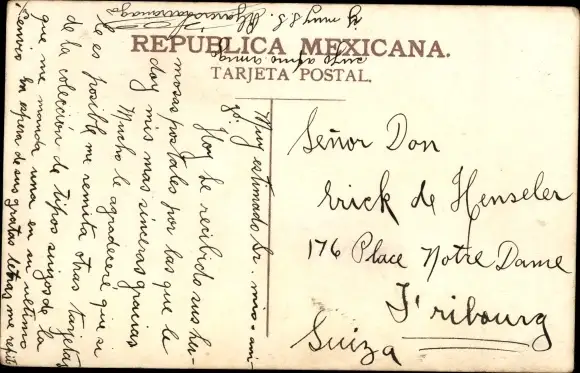 REPUBLICA MEXICANA.
TARJETA POSTAL.
Muy estimado Sr. mio y ami-
go:
Hoy he recibido sus her-
mosas postales por las que le
doy mis mas sinceras gracias
Mucho le agradeceré que si
le es posible me remita otras tarjetas
de la colección de tipos suizos de la
que me manda una en su ultimo
envio En espera de sus gratas letras me repito
suyo afmo amigo
y muy S.S.
Señor Don
Erick de Henseler
176 Place Notre Dame
Fribourg
Suiza